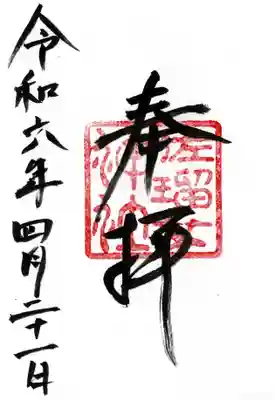 奉拝
令和六年四月二十一日